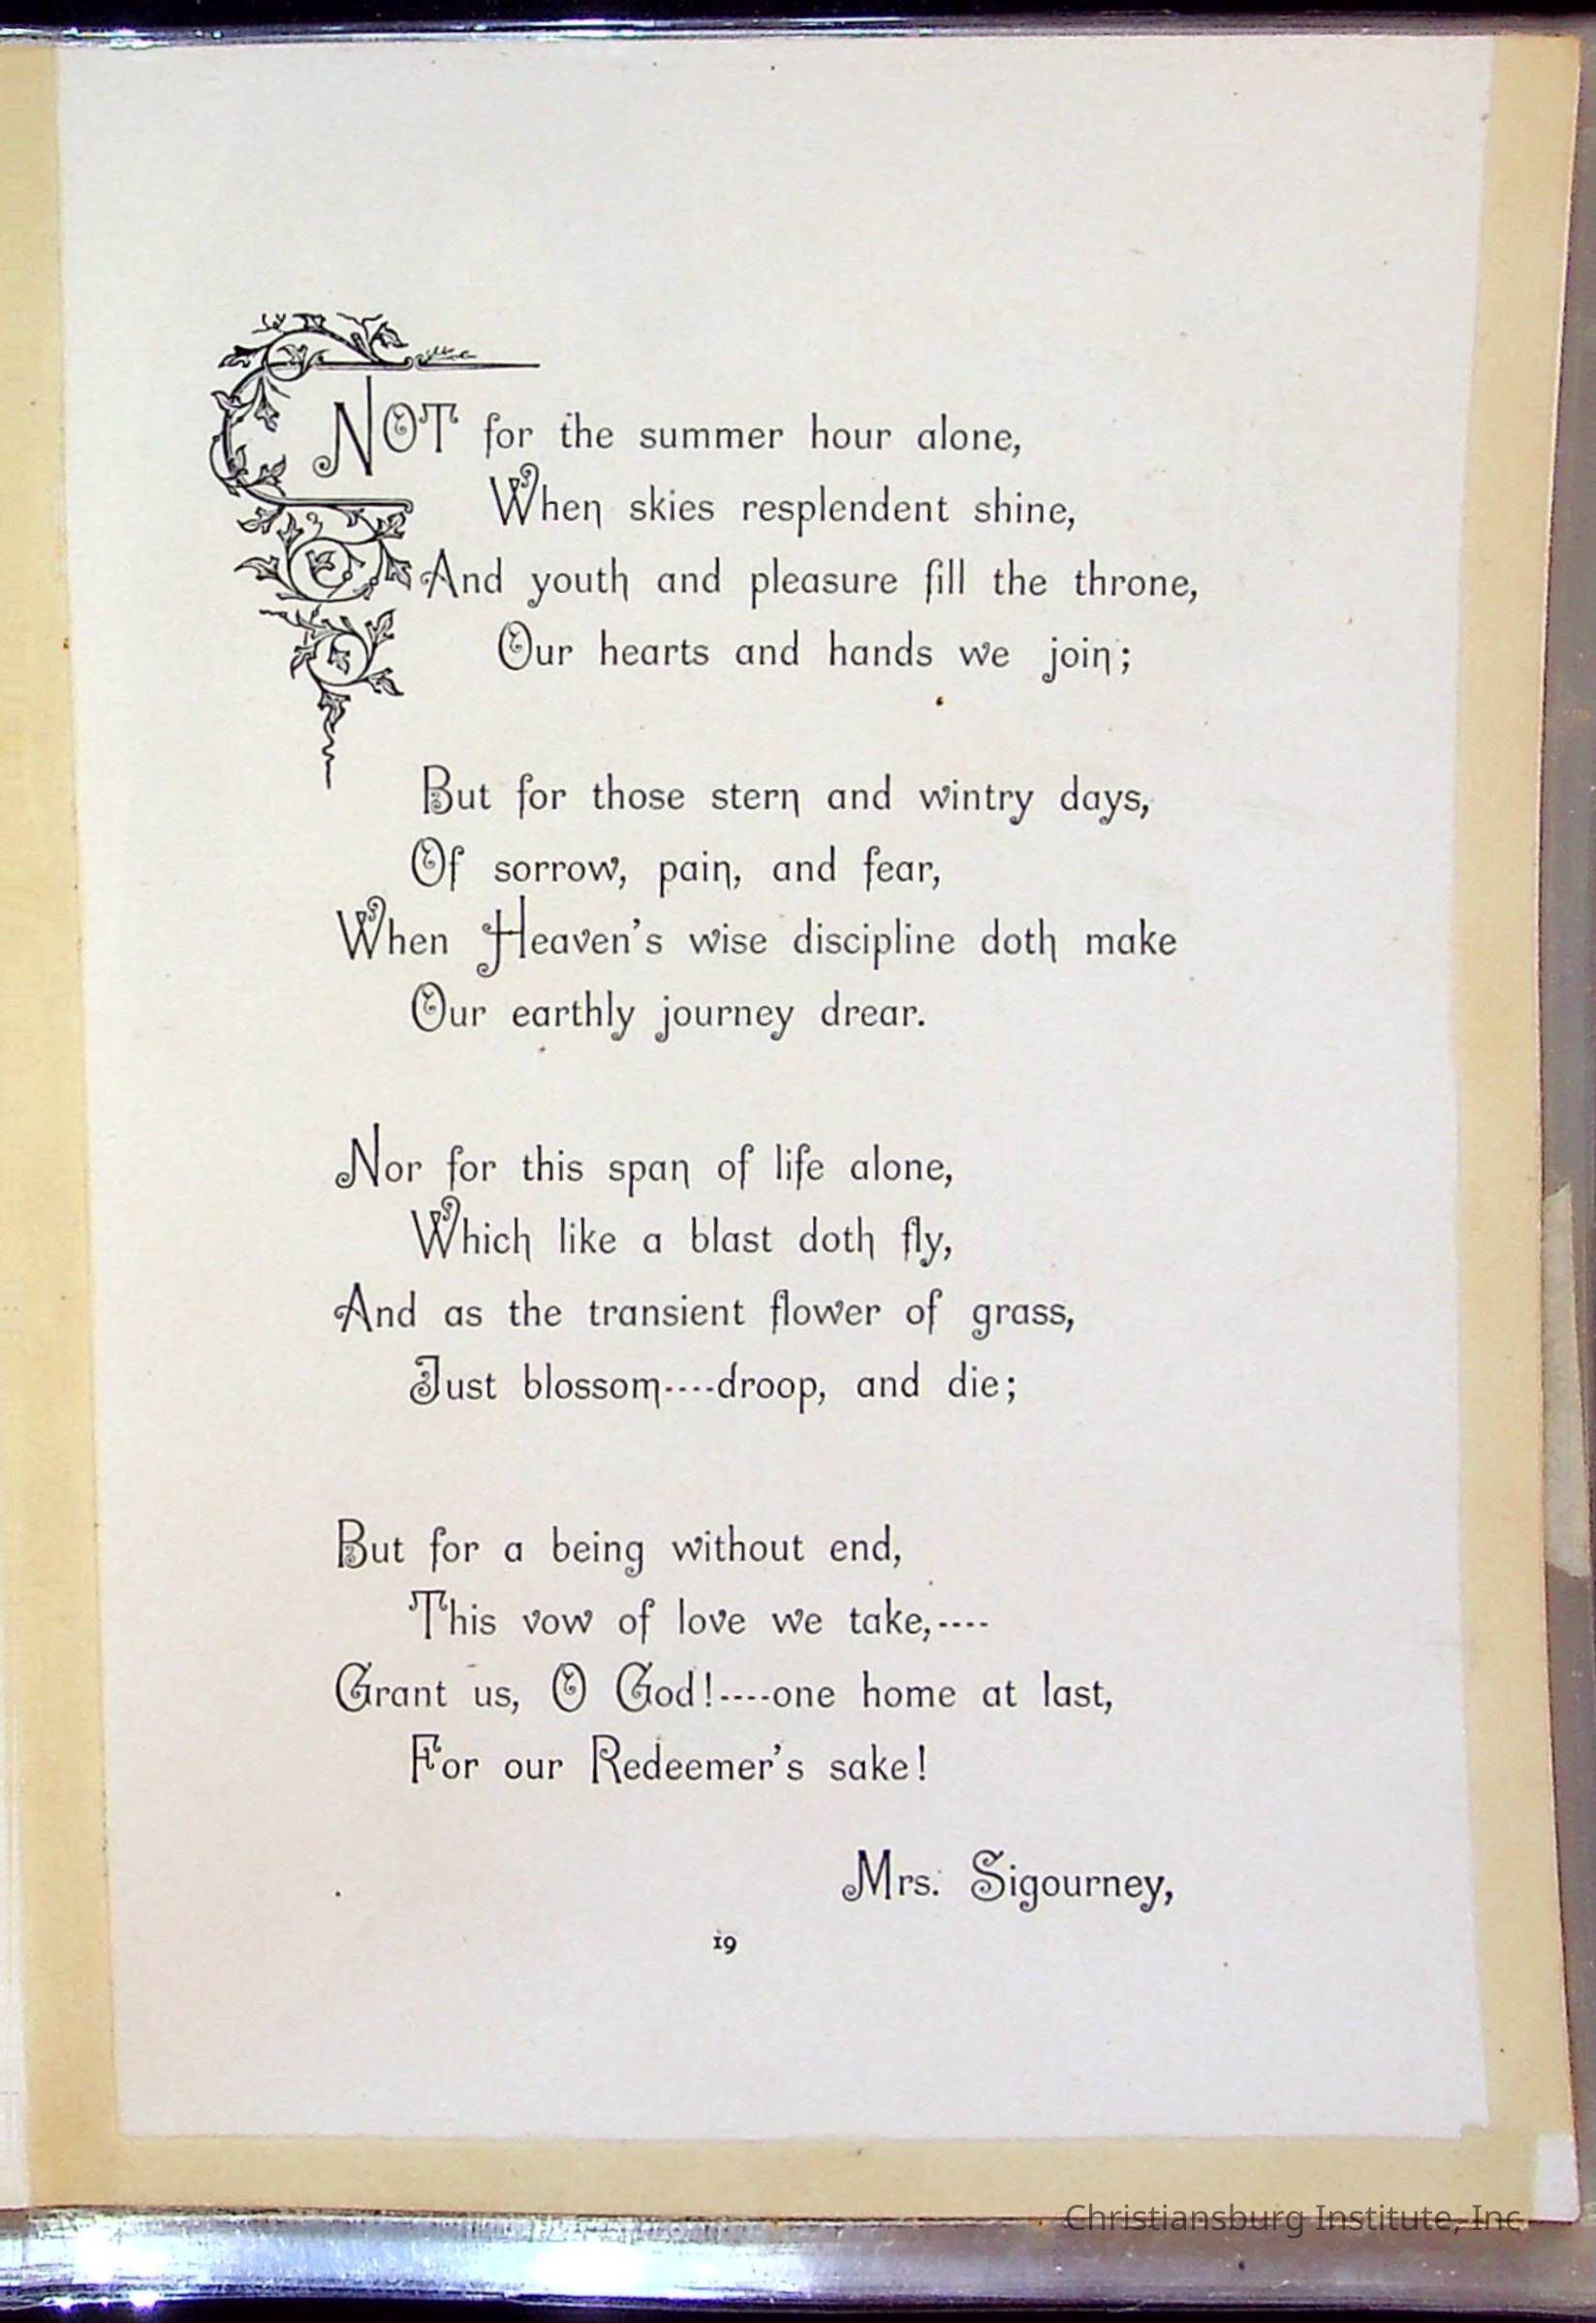 NOT for the summer hour alone,
When skies resplendent shine,
And youth and pleasure fill the throne,
Our hearts and hands we join;
But for those stern and wintry days,
Of sorrow, pain, and fear,
When Heaven's wise discipline doth make
Our earthly journey drear.
Nor for this span of life alone,
Which like a blast doth fly,
And as the transient flower of grass,
Just blossom----droop, and die;
But for a being without end,
This vow of love we take,----
Grant us, O God!----one home at last,
For our Redeemer's sake!
Mrs. Sigourney,
19
Christiansburg Institute, Inc